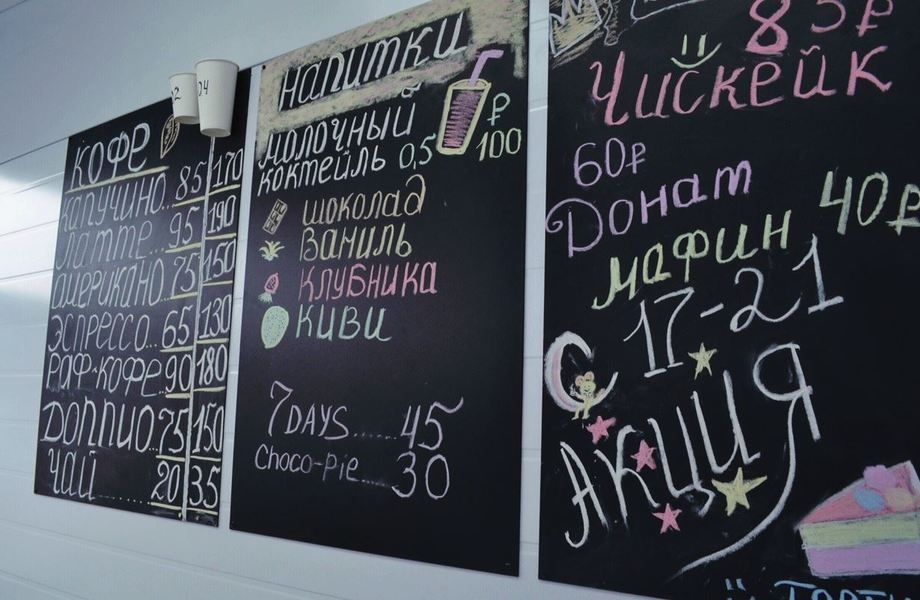 КОФЕ
КАПУЧИНО.. 85 170
ЛАТТЕ... 95 190
АМЕРИКАНО 75 150
ЭСПРЕССО.. 65 130
РАФ-КОФЕ 90 180
ДОППИО.. 75 150
ЧАЙ........ 20 35
НАПИТКИ
МОЛОЧНЫЙ
КОКТЕЙЛЬ 0,5 ₽ 100
ШОКОЛАД
ВАНИЛЬ
КЛУБНИКА
КИВИ
7 DAYS...... 45
CHOCO-PIE... 30
85₽
ЧИСКЕЙК
60₽
ДОНАТ
МАФИН 40₽
17-21
АКЦИЯ